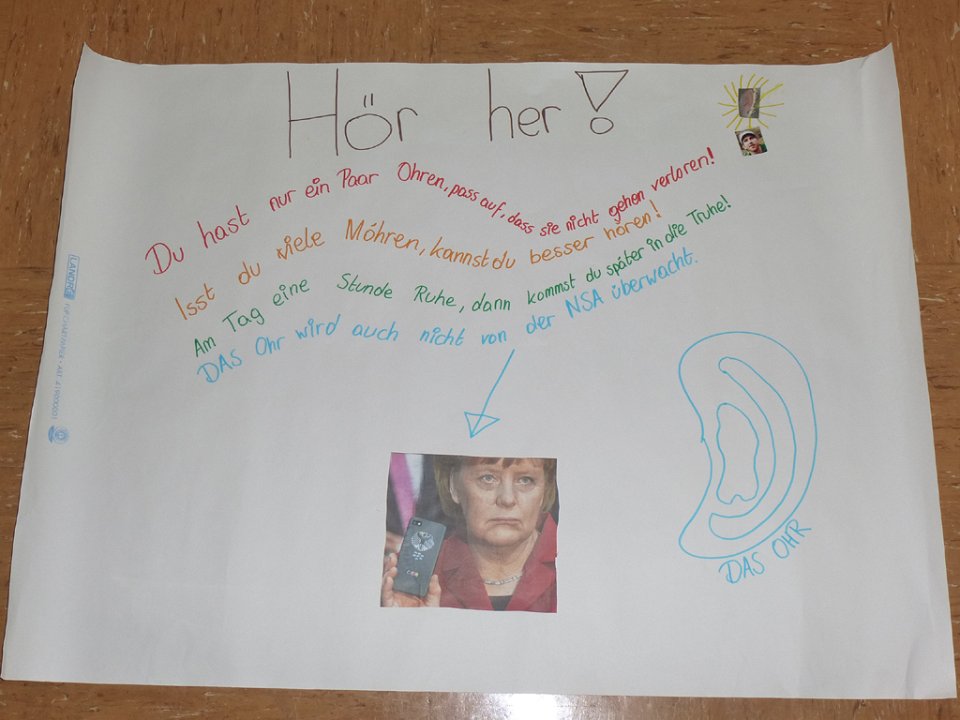 Hör her!
Du hast nur ein Paar Ohren, pass auf, dass sie nicht gehen verloren!
Isst du viele Möhren, kannst du besser hören!
Am Tag eine Stunde Ruhe, dann kommst du später in die Truhe!
DAS Ohr wird auch nicht von der NSA überwacht.
DAS OHR
LANDRÉ